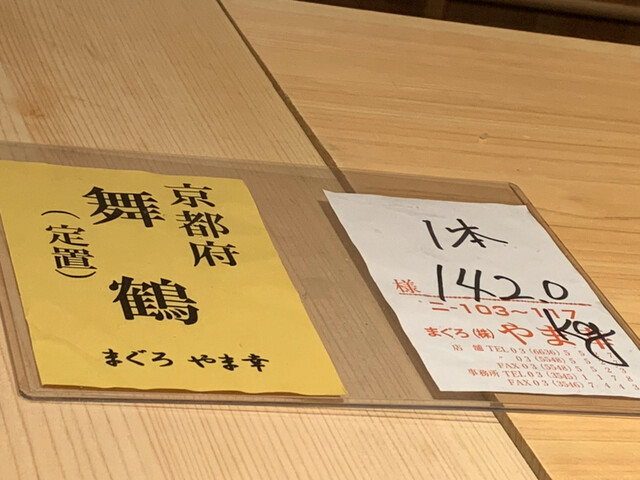 京都府
舞鶴
(定置)
まぐろ やま幸
1本
142.0
kg
様
ニー103~117
まぐろ(株)やま
店舗TEL 03(6636)5
03(5548)5 5
FAX 03(5548)5 5 2 3
事務所TEL 03(3545)1 1 7 8
FAX 03(3546)7 4 4